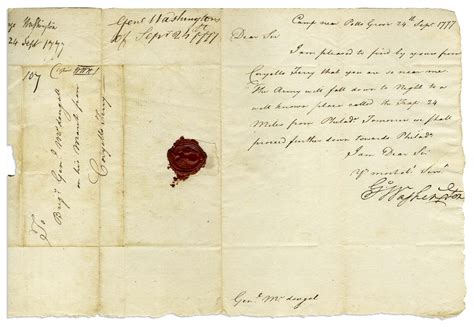 Camp near Potts Grove 24th Sepr. 1777
Dear Sir
I am pleased to find by yours from
Coryells Ferry that you are so near me
The Army will fall down to Night to a
well known place called the Trap 24
Miles from Philada. Tomorrow we shall
proceed further down towards Philada.
I am Dear Sir
Yr. most obt. Servt.
Go: Washington
Genl. McDougal
Genl. Washingtons
of Sepr. 24th 1777
Washington
24 Sept 1777
107
To
Brigr. Genl. McDougal
on his March from
Coryells Ferry